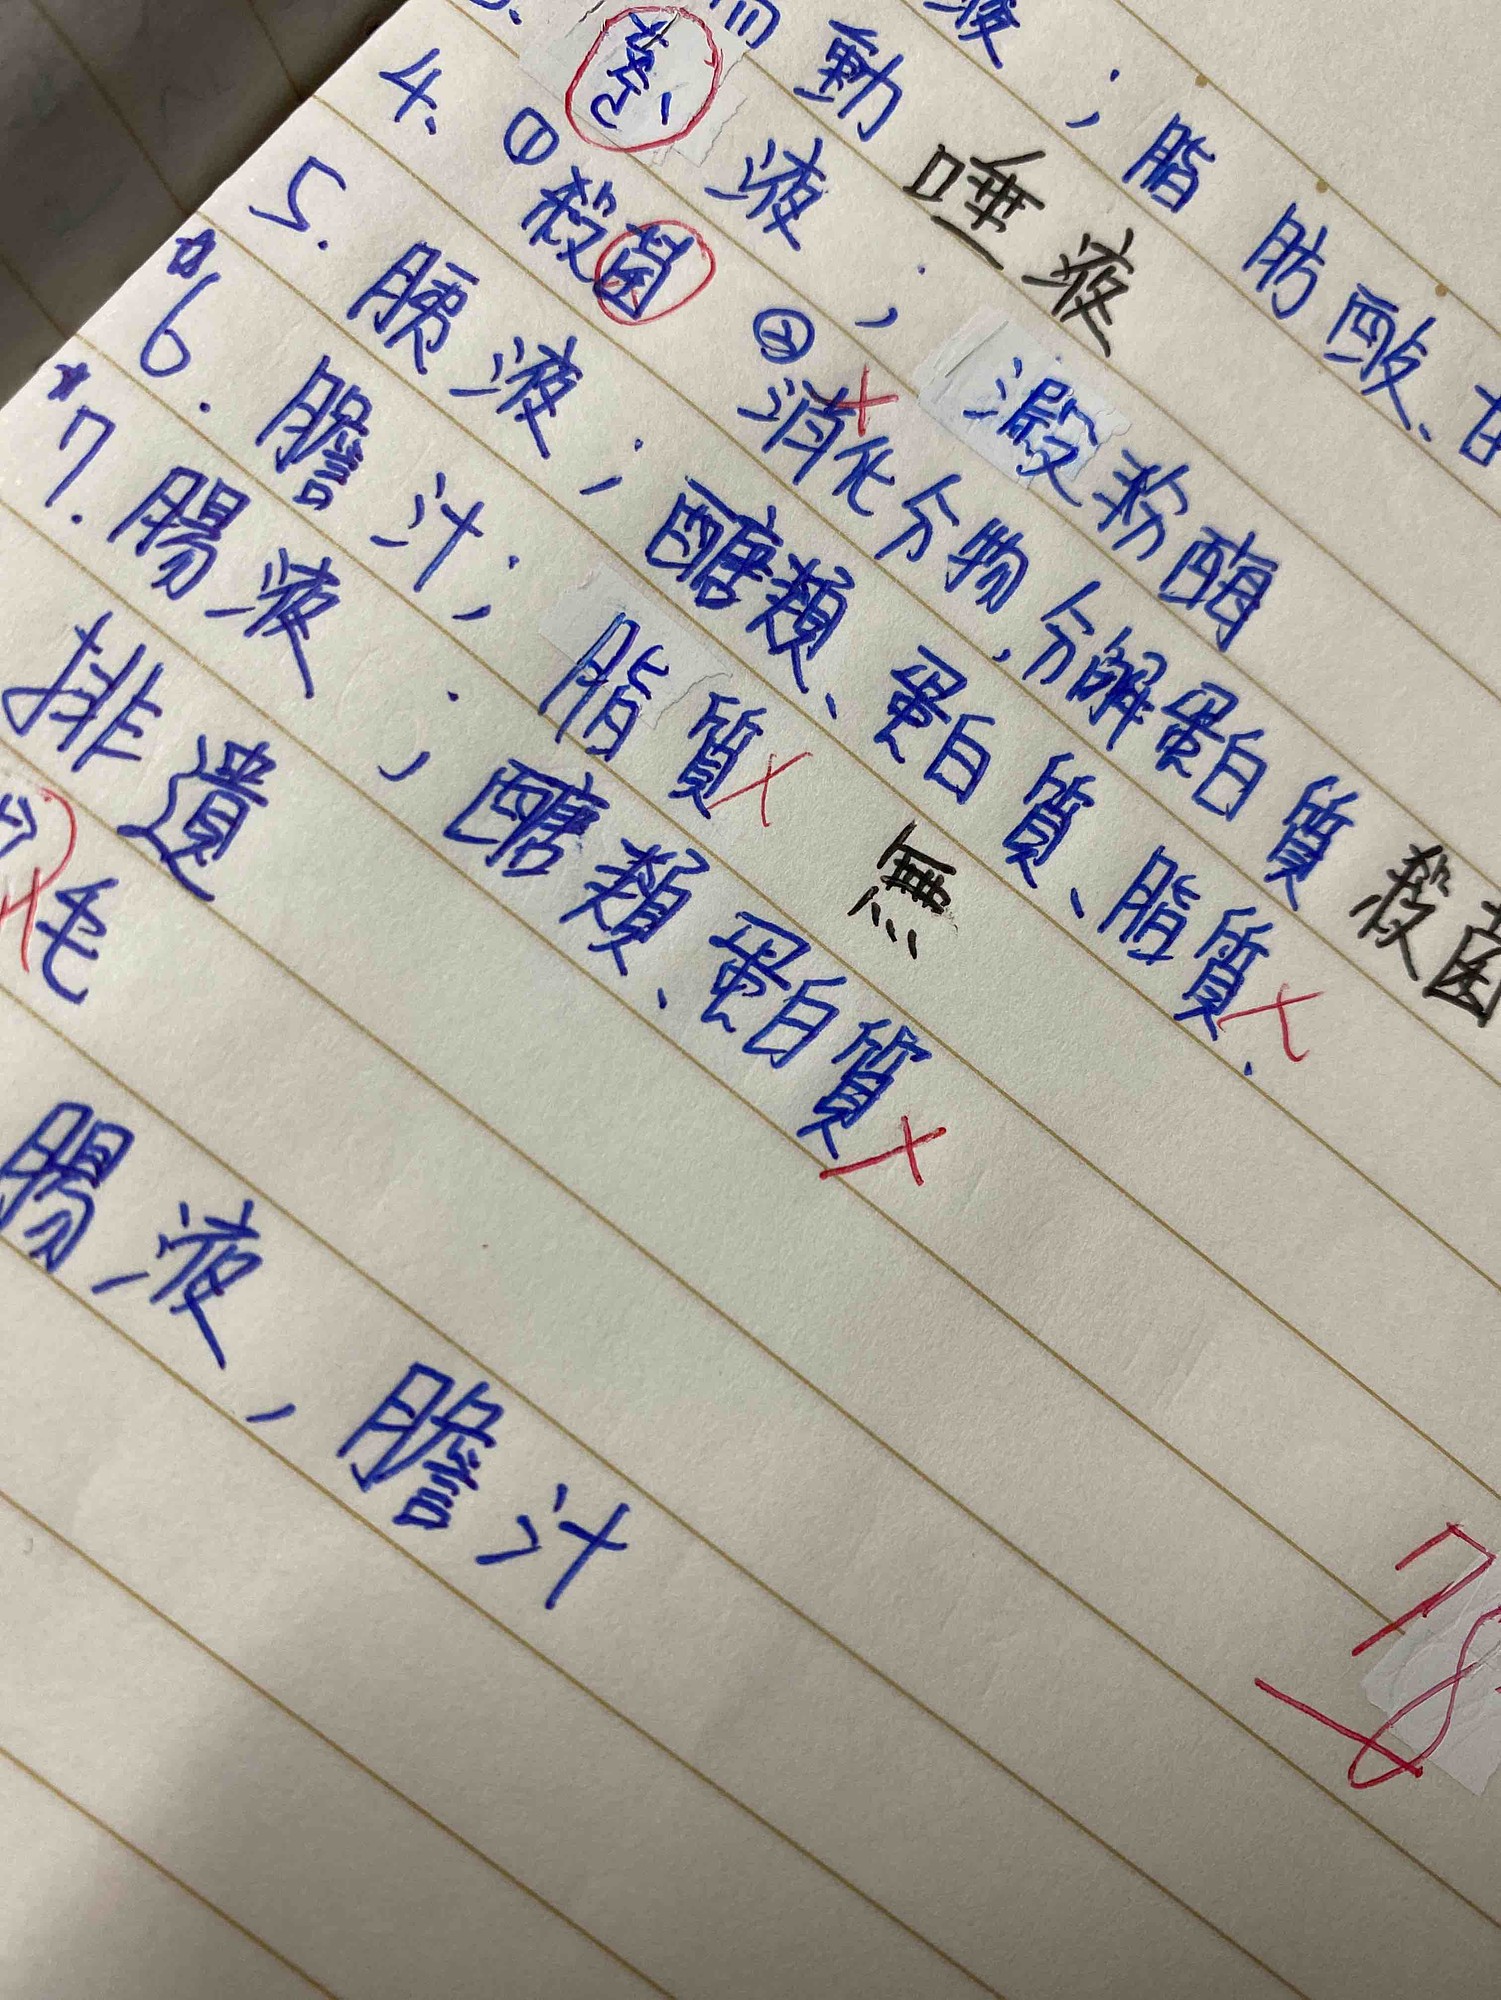 液；脂肪酸、甘
動
3.
唾液
液；澱粉酶
4. ①殺菌 ②消化分物，分解蛋白質 殺菌
5. 胰液；醣類、蛋白質、脂質.
6. 膽汁；脂質 無
7. 腸液；醣類、蛋白質
排遺
毛
腸液，膽汁
78